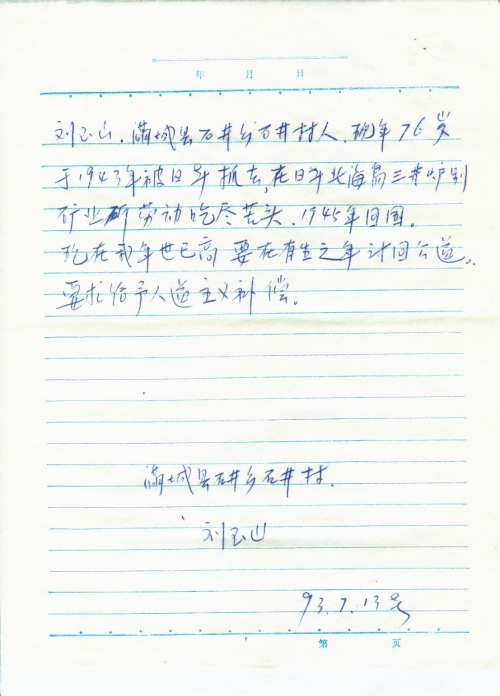 年 月 日
刘玉山、满城县石井乡石井村人、现年76岁
于1943年被日本抓去,在日本北海岛三井炉别
矿业所劳动吃尽苦头、1945年回国。
现在我年世已高 要在有生之年讨回公道。
要求给予人道主义补偿。
满城县石井乡石井村.
刘玉山
93.7.13号
第 页